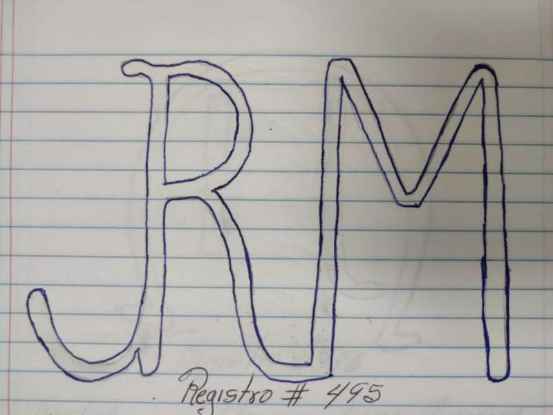 RM
Registro # 495